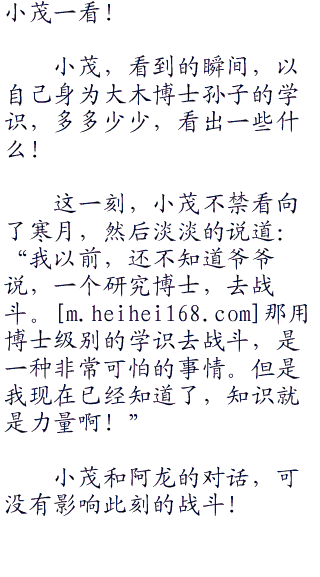 小茂一看！
小茂，看到的瞬间，以
自己身为大木博士孙子的学
识，多多少少，看出一些什
么！
这一刻，小茂不禁看向
了寒月，然后淡淡的说道：
“我以前，还不知道爷爷
说，一个研究博士，去战
斗。[m.heihei168.com]那用
博士级别的学识去战斗，是
一种非常可怕的事情。但是
我现在已经知道了，知识就
是力量啊！”
小茂和阿龙的对话，可
没有影响此刻的战斗！